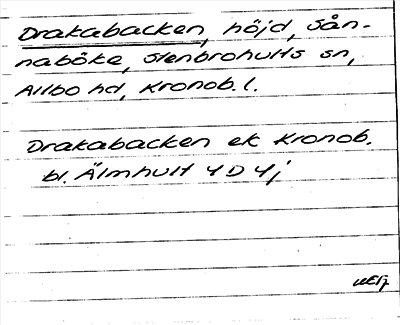 Drakabacken, höjd, Sån-
naböke, Stenbrohults sn,
Allbo hd, Kronob. l.
Drakabacken ek Kronob.
bl. Älmhult 4D4j